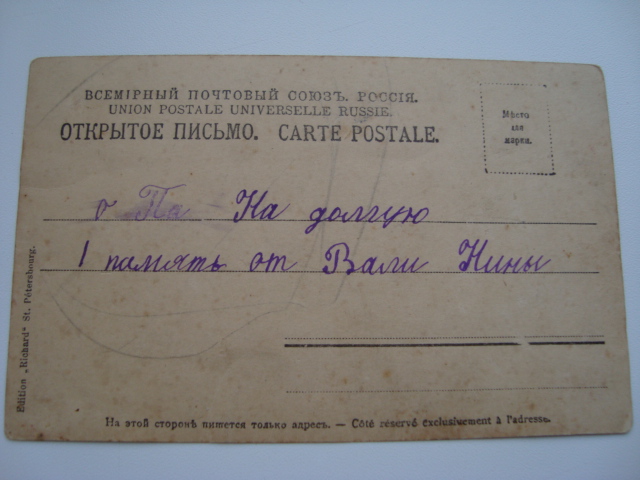 ВСЕМІРНЫЙ ПОЧТОВЫЙ СОЮЗЪ. РОССІЯ.
UNION POSTALE UNIVERSELLE RUSSIE.
ОТКРЫТОЕ ПИСЬМО. CARTE POSTALE.
Мѣсто
для
марки.
На долгую
память от Вали Нины
Edition „Richard" St. Pétersbourg.
На этой сторонѣ пишется только адресъ. — Côté réservé exclusivement à l'adresse.